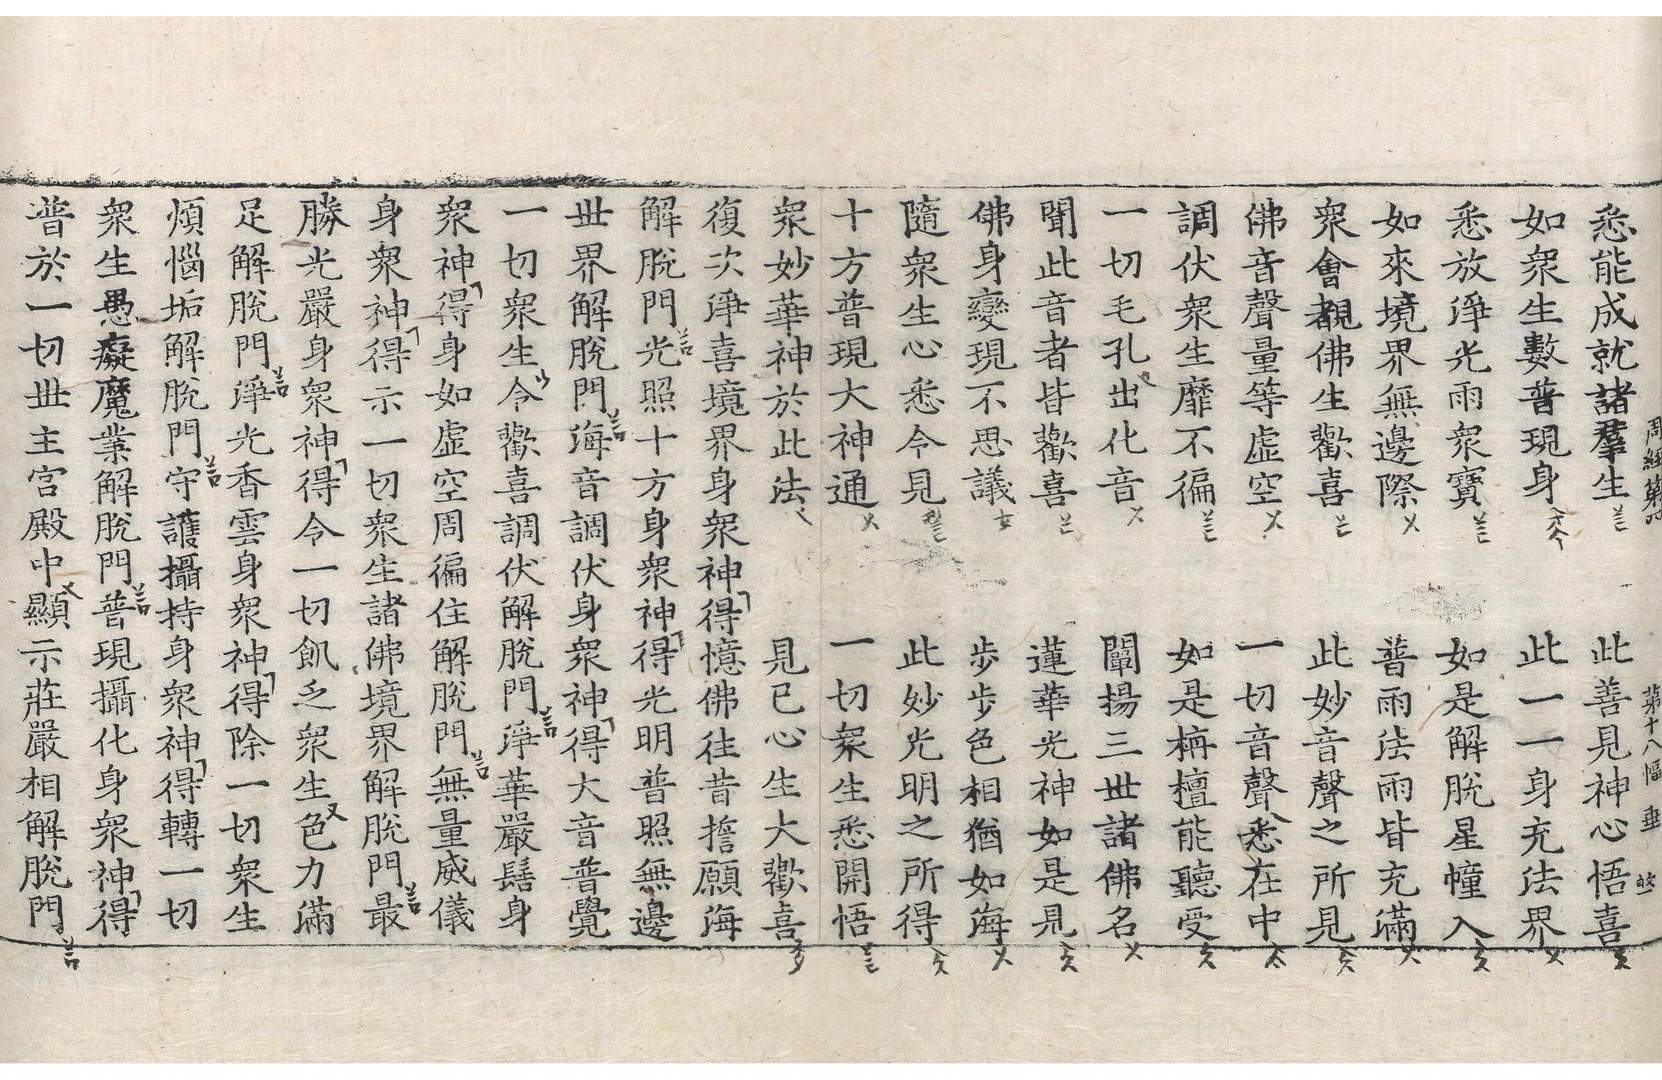 周經第四 第十八幅 垂
悉能成就諸羣生 此善見神心悟喜
如衆生數普現身 此一一身充法界
悉放淨光雨衆寶 如是解脫星幢入
如來境界無邊際 普雨法雨皆充滿
衆會覩佛生歡喜 此妙音聲之所見
佛音聲量等虛空 一切音聲悉在中
調伏衆生靡不徧 如是栴檀能聽受
一切毛孔出化音 闡揚三世諸佛名
聞此音者皆歡喜 蓮華光神如是見
佛身變現不思議 步步色相猶如海
隨衆生心悉令見 此妙光明之所得
十方普現大神通 一切衆生悉開悟
衆妙華神於此法 見已心生大歡喜
復次淨喜境界身衆神得憶佛往昔誓願海
解脫門光照十方身衆神得光明普照無邊
世界解脫門海音調伏身衆神得大音普覺
一切衆生令歡喜調伏解脫門淨華嚴髻身
衆神得身如虛空周徧住解脫門無量威儀
身衆神得示一切衆生諸佛境界解脫門最
勝光嚴身衆神得令一切飢乏衆生色力滿
足解脫門淨光香雲身衆神得除一切衆生
煩惱垢解脫門守護攝持身衆神得轉一切
衆生愚癡魔業解脫門普現攝化身衆神得
普於一切世主宮殿中顯示莊嚴相解脫門